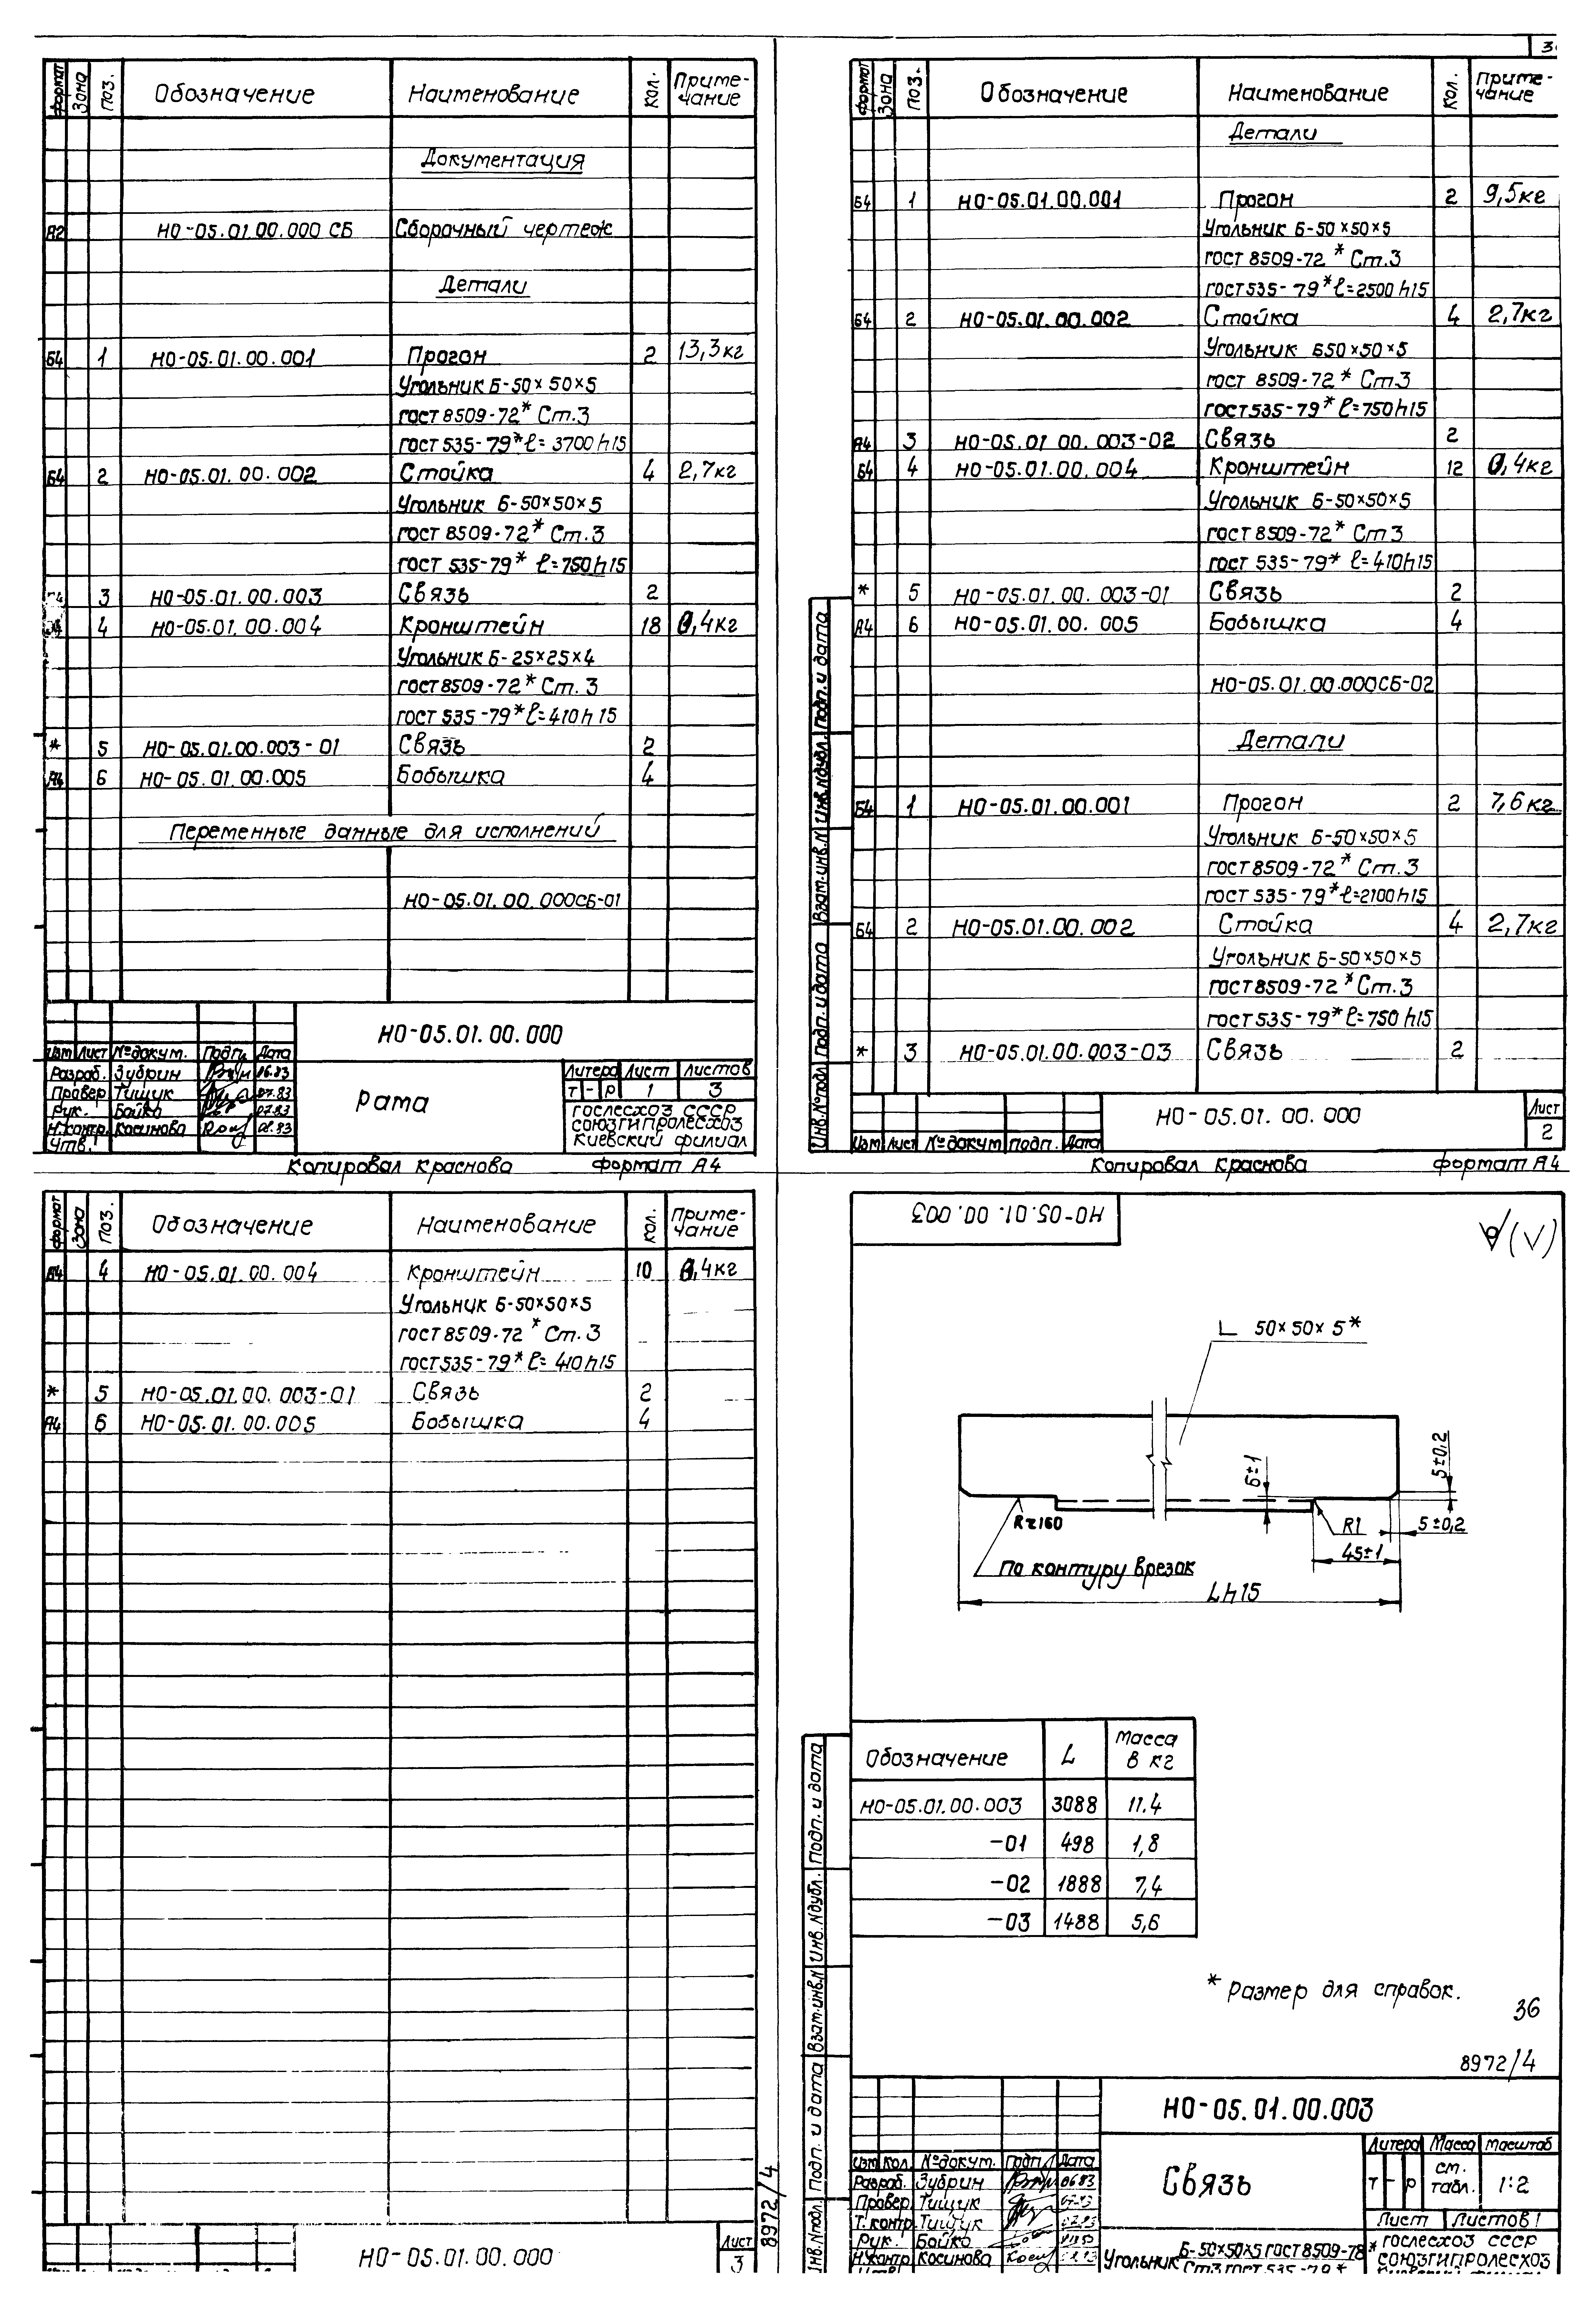 формат Зона Поз. Обозначение Наименование Кол. Приме-
чание
Документация
А2 НО-05.01.00.000 СБ Сборочный чертеж
Детали
Б4 1 НО-05.01.00.001 Прогон 2 13,3кг
Угольник Б-50×50×5
гост 8509-72* Ст.3
гост 535-79* ℓ=3700h15
Б4 2 НО-05.01.00.002 Стойка 4 2,7кг
Угольник Б-50×50×5
гост 8509-72* Ст.3
гост 535-79* ℓ=750h15
3 НО-05.01.00.003 Связь 2
4 НО-05.01.00.004 Кронштейн 18 0,4кг
Угольник Б-25×25×4
гост 8509-72* Ст.3
гост 535-79* ℓ=410h15
* 5 НО-05.01.00.003-01 Связь 2
А4 6 НО-05.01.00.005 Бобышка 4
Переменные данные для исполнений
НО-05.01.00.000СБ-01
НО-05.01.00.000
Изм Лист №докум. Подп. Дата
Разраб. Зубрин 06.83
Провер. Тищук 07.83
Рук. Бойко 07.83
Н.контр. Косинова 08.83
Утв.
рама
Литера Лист Листов
т - р 1 3
гослесхоз СССР
союзгипролесхоз
Киевский филиал
Копировал Краснова формат А4
формат Зона Поз. Обозначение Наименование Кол. Приме-
чание
Детали
Б4 1 НО-05.01.00.001 Прогон 2 9,5кг
Угольник Б-50×50×5
гост 8509-72* Ст.3
гост 535-79* ℓ=2500h15
Б4 2 НО-05.01.00.002 Стойка 4 2,7кг
Угольник Б50×50×5
гост 8509-72* Ст.3
гост 535-79* ℓ=750h15
А4 3 НО-05.01.00.003-02 Связь 2
Б4 4 НО-05.01.00.004 Кронштейн 12 0,4кг
Угольник Б-50×50×5
гост 8509-72* Ст3
гост 535-79* ℓ=410h15
* 5 НО-05.01.00.003-01 Связь 2
А4 6 НО-05.01.00.005 Бобышка 4
НО-05.01.00.000СБ-02
Детали
Б4 1 НО-05.01.00.001 Прогон 2 7,6кг
Угольник Б-50×50×5
гост 8509-72* Ст.3
гост 535-79* ℓ=2100h15
Б4 2 НО-05.01.00.002 Стойка 4 2,7кг
Угольник Б-50×50×5
гост 8509-72* Ст.3
гост 535-79* ℓ=750h15
* 3 НО-05.01.00.003-03 Связь 2
Инв.№подл. Подп. и дата Взам.инв.№ Инв.№дубл. Подп. и дата
Изм Лист №докум подп. Дата
НО-05.01.00.000
Лист
2
Копировал Краснова формат А4
формат Зона Поз. Обозначение Наименование Кол. Приме-
чание
4 НО-05.01.00.004 Кронштейн 10 0,4кг
Угольник Б-50×50×5
гост 8509-72* Ст.3
гост 535-79* ℓ=410h15
* 5 НО-05.01.00.003-01 Связь 2
А4 6 НО-05.01.00.005 Бобышка 4
НО-05.01.00.000
Лист
3
8972/4
НО-05.01.00.003
(√)
L 50×50×5*
6±1
5±0,2
Rz160
R1
5±0,2
45±1
По контуру врезок
Lh15
Обозначение L Масса
в кг
НО-05.01.00.003 3088 11.4
-01 498 1,8
-02 1888 7,4
-03 1488 5,6
* Размер для справок.
36
8972/4
Инв.№подл. Подп. и дата Взам.инв.№ Инв.№дубл. Подп. и дата
НО-05.01.00.003
Изм Кол. №докум. Подп. Дата
Разраб. Зубрин 06.83
Провер. Тищук
Т.контр. Тищук
Рук. Бойко
Н.контр. Косинова
Связь
Литера Масса Масштаб
т - р см.
табл. 1:2
Лист Листов 1
Угольник Б-50×50×5 ГОСТ 8509-78*
Ст3 ГОСТ 535-79*
гослесхоз СССР
союзгипролесхоз